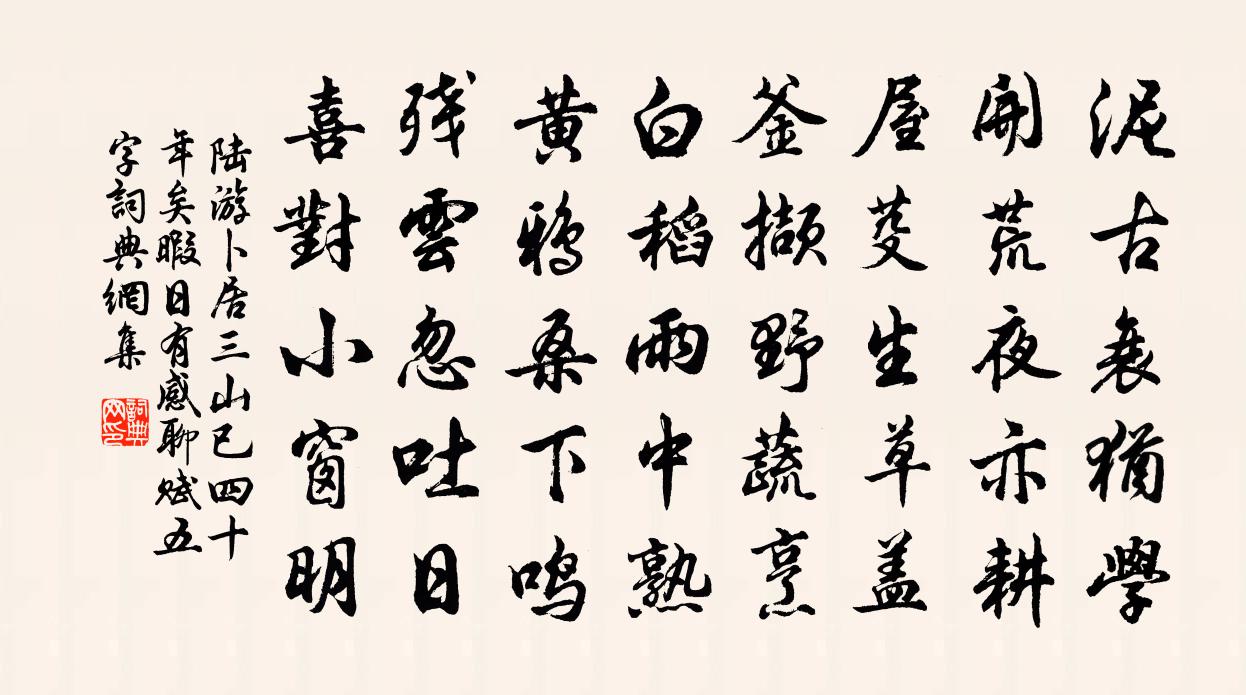 泥古衰猶學
開荒夜亦耕
屋芟生草盖
釜擷野蔬烹
白稻雨中熟
黄鸦桑下鸣
残雲忽吐日
喜對小窗明
陆游卜居三山已四十
年矣暇日有感聊赋五
字詞典網集
詞典網印